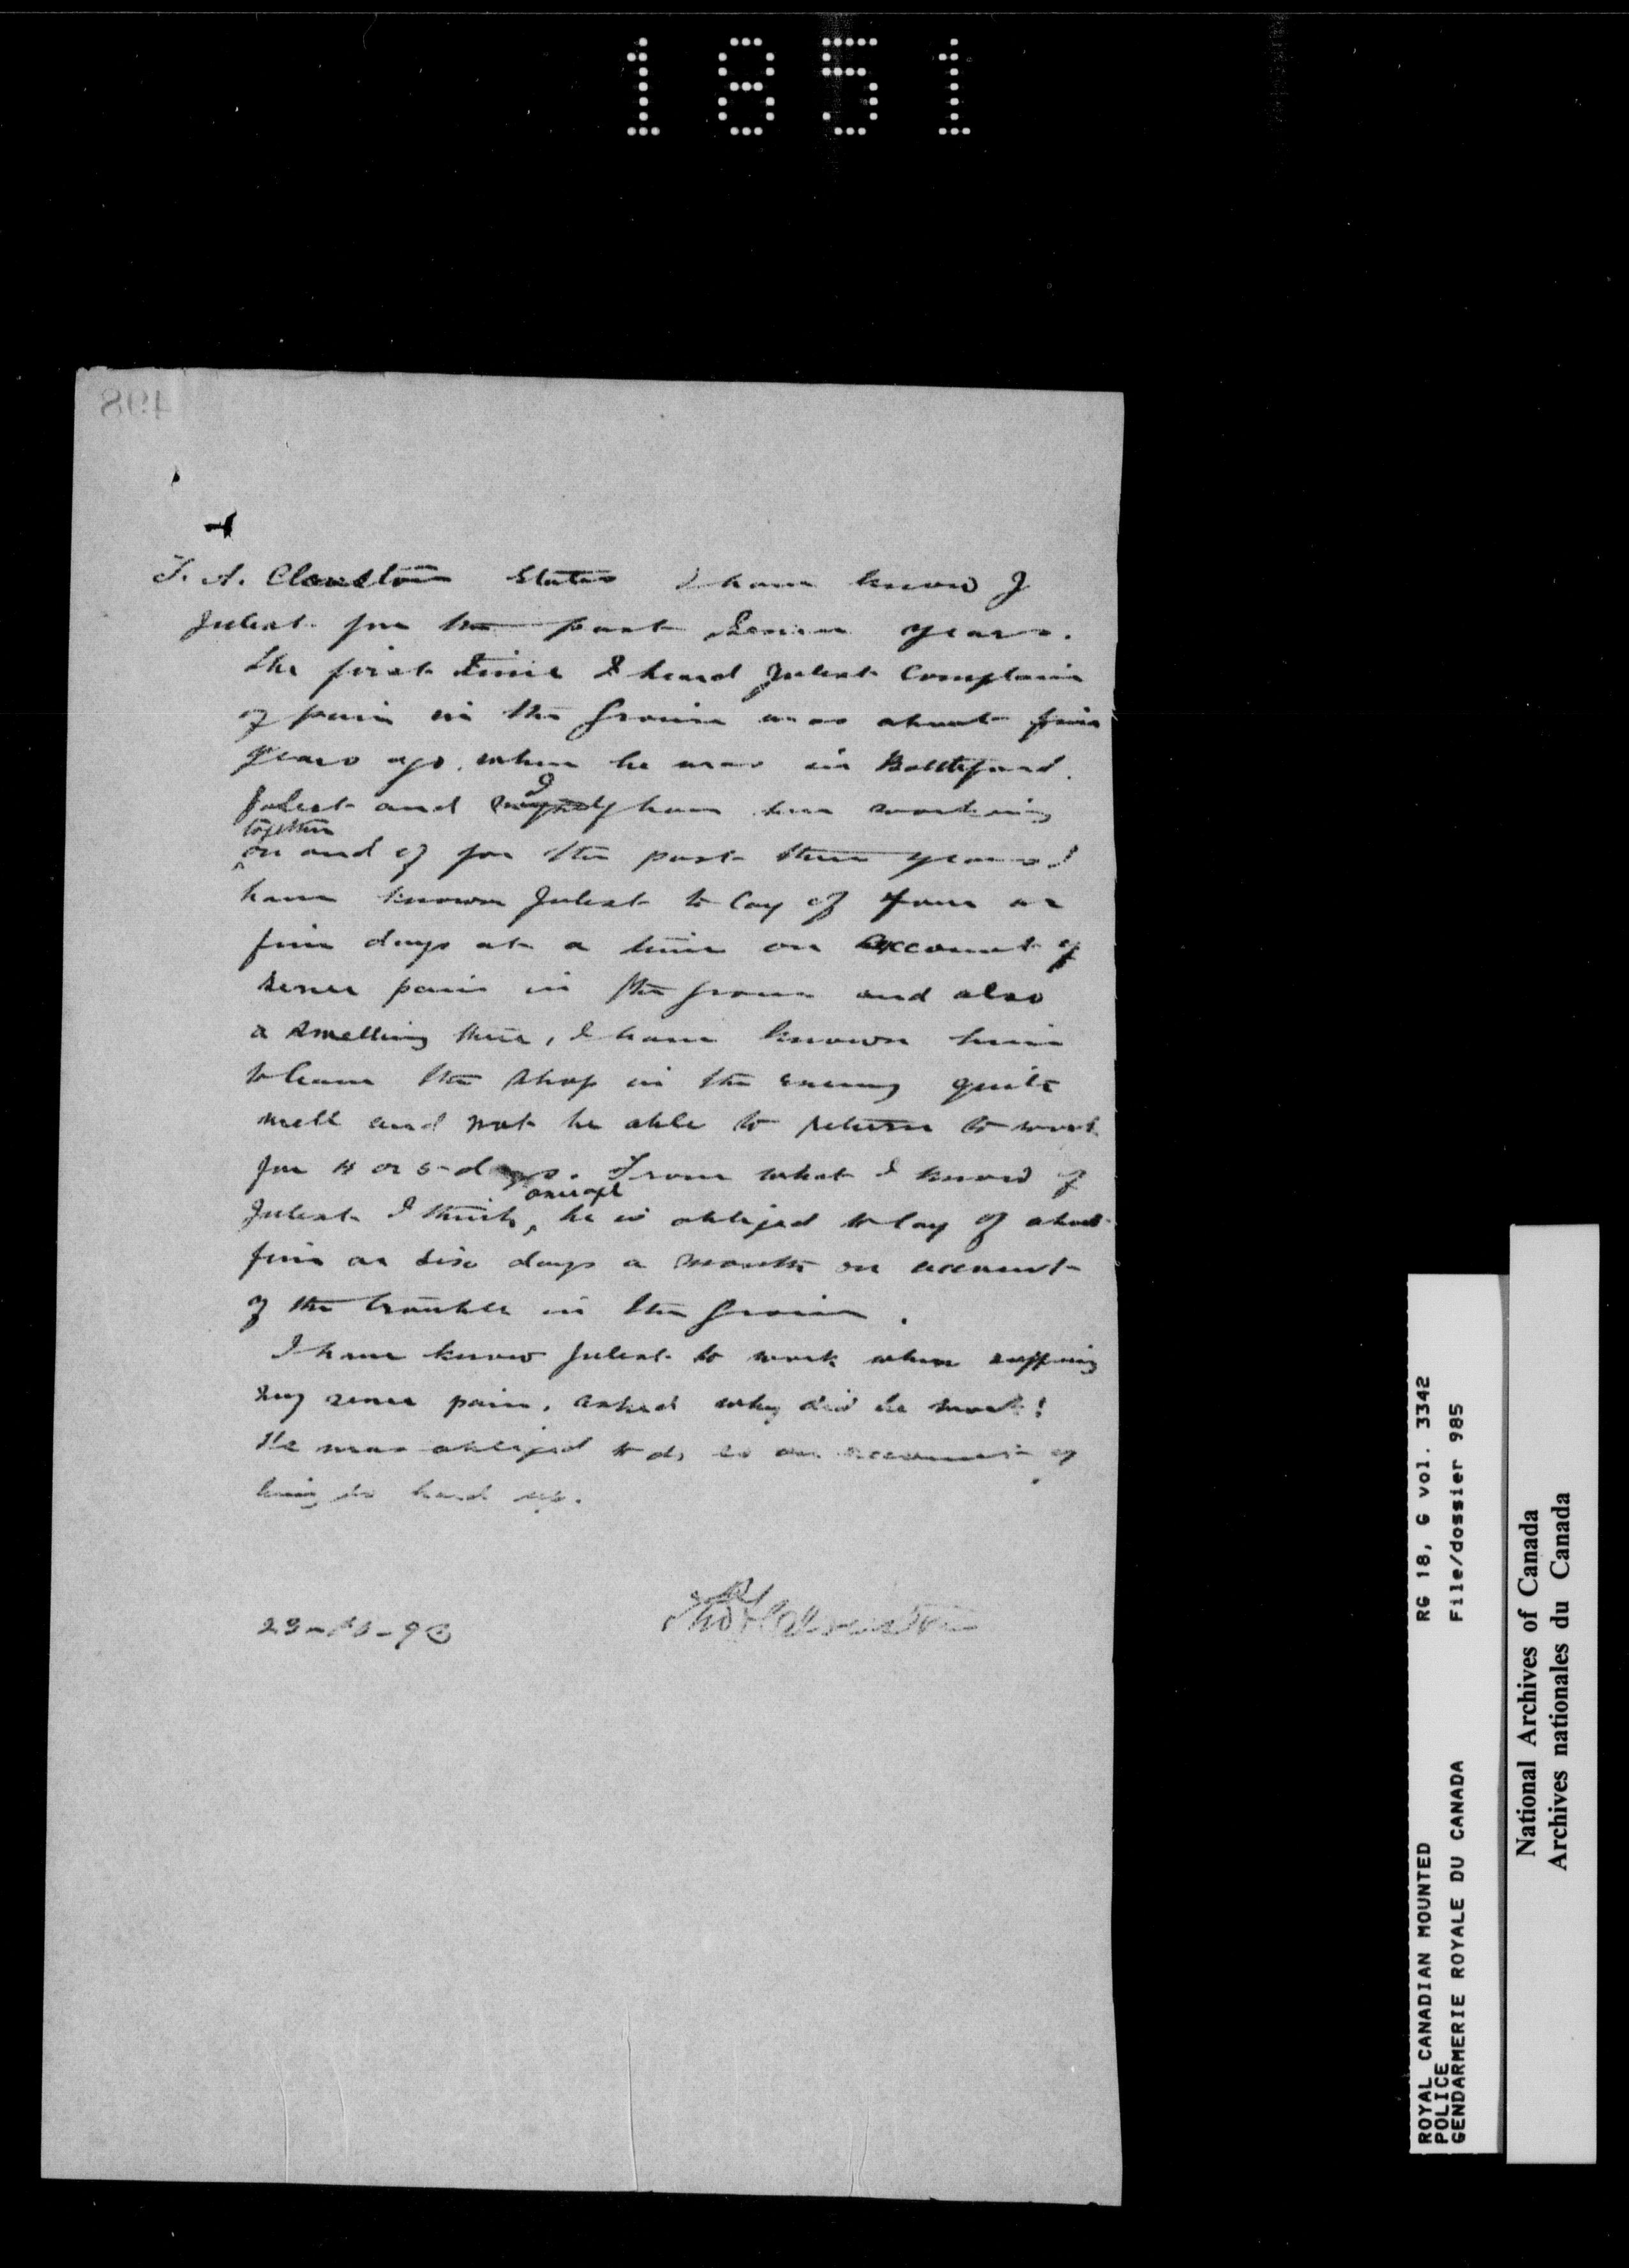 1851
498
T. A. Clouston States I have know J
Julest for the past Seven years.
The first time I heard Julest Complain
of pain in the Groin was about five
years ago, when he was in Battleford.
Julest and myself I have been working
together
on and of for the past three years I
have known Julest to lay of four or
five days at a time on account of
severe pain in the groin and also
a swelling there, I have known him
to leave the shop in the evening quite
well and not be able to return to work
for 4 or 5 days. From what I know of
average
Julest I think, he is obliged to lay of about
five or six days a month on account
of the trouble in the Groin.
I have know Julest to work when suffering
very severe pain, asked why did he work!
He was obliged to do so on account of
being so hard up.
Clouston
ROYAL CANADIAN MOUNTED RG 18, G vol. 3342
POLICE
GENDARMERIE ROYALE DU CANADA File/dossier 985
National Archives of Canada
Archives nationales du Canada